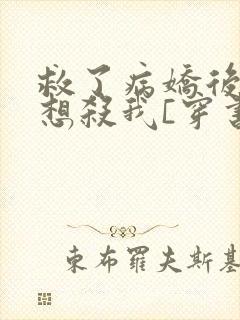 救了病嬌後
想殺我[穿書
東布羅夫斯基